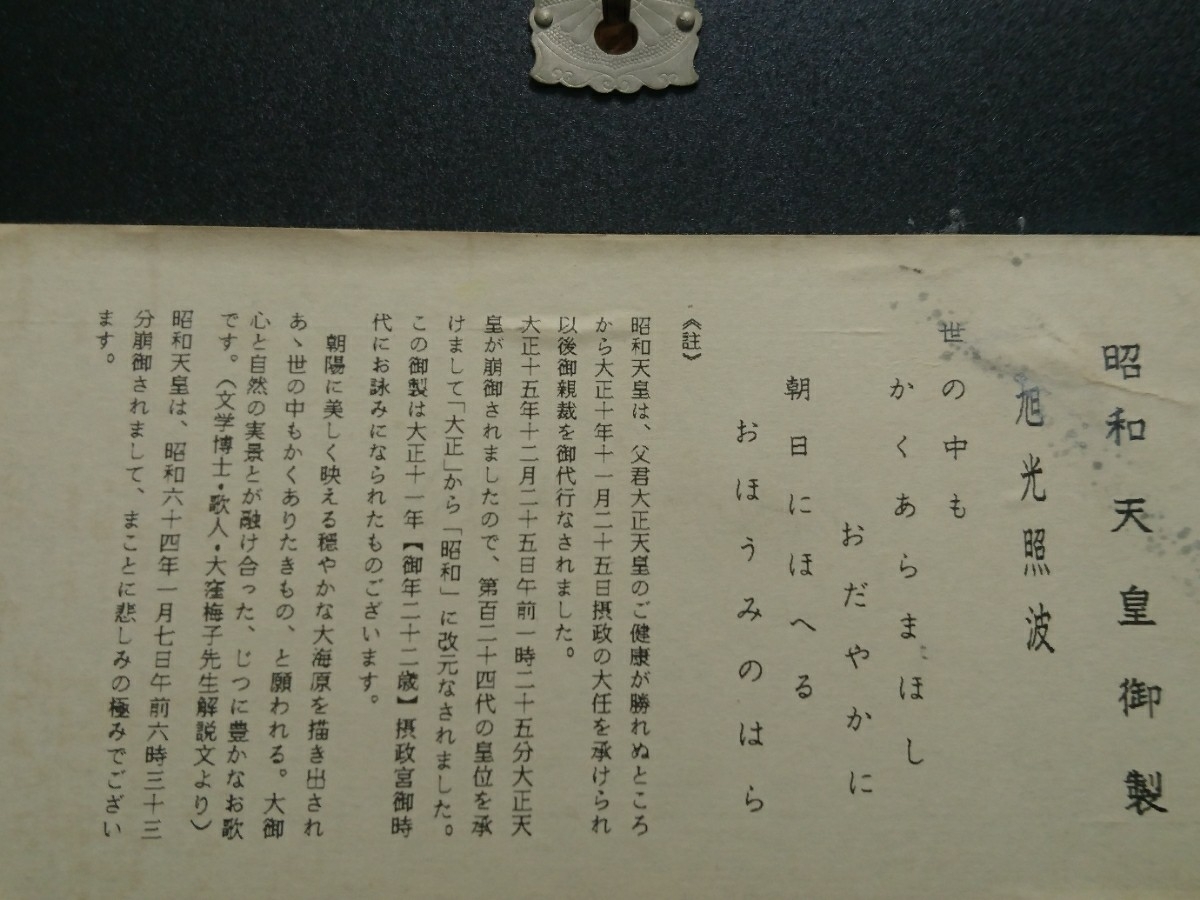 昭和天皇御製
旭光照波
世の中も
かくあらまほし
おだやかに
朝日にほへる
おほうみのはら
《註》
昭和天皇は、父君大正天皇のご健康が勝れぬところ
から大正十年十一月二十五日摂政の大任を承けられ
以後御親裁を御代行なされました。
大正十五年十二月二十五日午前一時二十五分大正天
皇が崩御されましたので、第百二十四代の皇位を承
けまして「大正」から「昭和」に改元なされました。
この御製は大正十一年【御年二十二歳】摂政宮御時
代にお詠みになられたものございます。
朝陽に美しく映える穏やかな大海原を描き出され
あゝ世の中もかくありたきもの、と願われる。大御
心と自然の実景とが融け合った、じつに豊かなお歌
です。（文学博士・歌人・大窪梅子先生解説文より）
昭和天皇は、昭和六十四年一月七日午前六時三十三
分崩御されまして、まことに悲しみの極みでござい
ます。